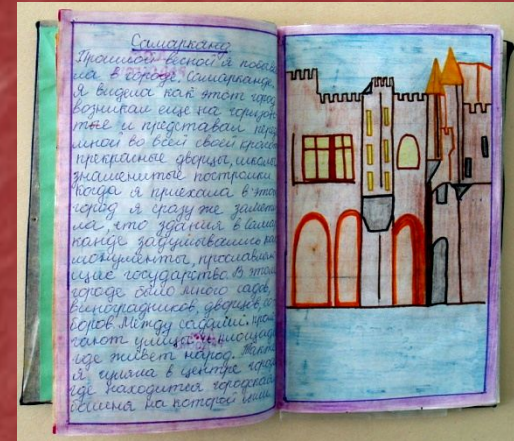 Самарканд
Прошлой весной я побыва
ла в городе Самарканде.
Я видела как этот город
возникал еще на горизон
те и представал перед
мной во всей своей красе
прекрасные дворцы, школы
знаменитые постройки.
Когда я приехала в этот
город я сразу же замети
ла, что здания в Самар
канде задумывались как
монументы, прославляю
щие государство. В этом
городе было много садов,
виноградников, дворцов, со
боров. Между садами про
легают улицы и площади
где живет народ. Также
я гуляла в центре города
где находится городская
башня на которой